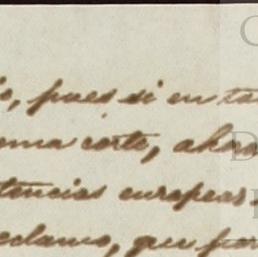 o, pues si en ta
ema corte, ahor
tencias europeas
eclamo, que por